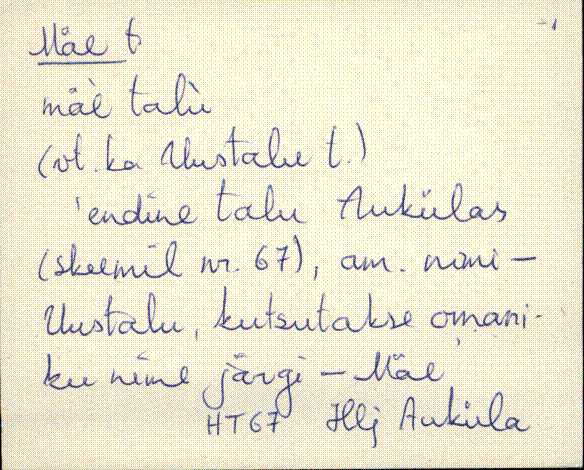 Mäe t
mäe talu
(vt. ka Uustalu t.)
'endine talu Auküla's
(skeemil nr. 67), am. nimi –
Uustalu, kutsutakse omani-
ku nime järgi – Mäe
HT67 Hlj Auküla